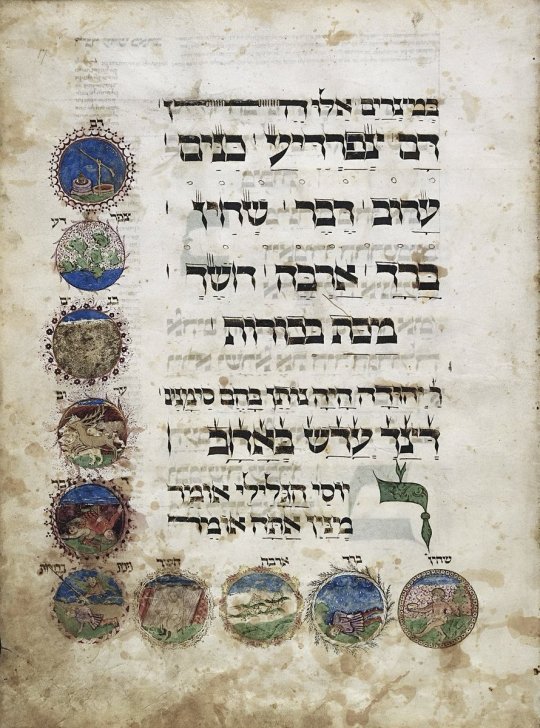 במצרים אלו הן
דם צפרדיע כנים
ערוב דבר שחין
ברד ארבה חשך
מכת בכורות
ר יהודה היה נותן בהם סימנים
דצך עדש באחב
ר יוסי הגלילי אומר
מנין אתה אומר
דם
צפר דע
כנ ים
שחין
ברד
ארבה
חשך